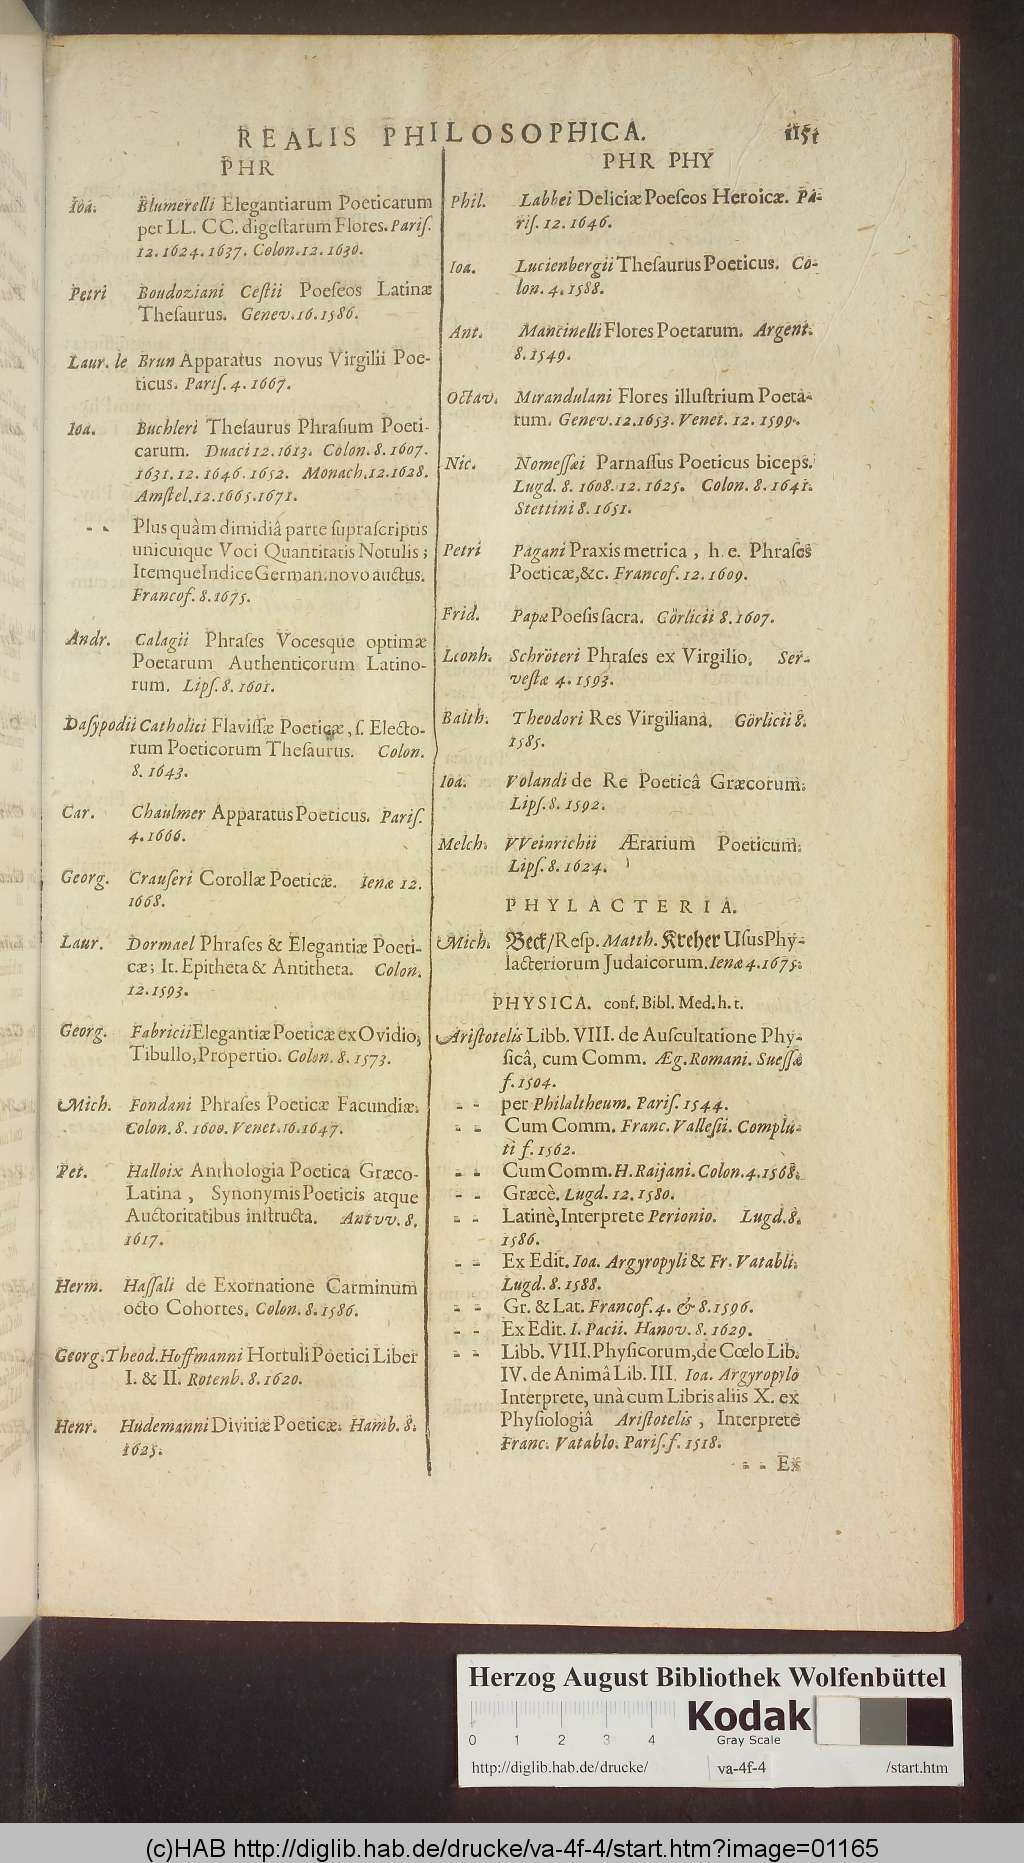 REALIS PHILOSOPHICA. 1151
PHR
Ioa. Blumerelli Elegantiarum Poeticarum
per LL. CC. digeſtarum Flores. Pariſ.
12. 1624. 1637. Colon. 12. 1630.
Petri Boudoziani Ceſtii Poeſeos Latinæ
Theſaurus. Genev. 16. 1586.
Laur. le Brun Apparatus novus Virgilii Poe-
ticus. Pariſ. 4. 1667.
Ioa. Buchleri Theſaurus Phraſium Poeti-
carum. Duaci 12. 1613. Colon. 8. 1607.
1631. 12. 1646. 1652. Monach. 12. 1628.
Amſtel. 12. 1665. 1671.
- - Plus quàm dimidiâ parte ſupraſcriptis
unicuique Voci Quantitatis Notulis;
Itemque Indice German. novo auctus.
Francof. 8. 1675.
Andr. Calagii Phraſes Vocesque optimæ
Poetarum Authenticorum Latino-
rum. Lipſ. 8. 1601.
Daſypodii Catholici Flaviſſæ Poeticæ, ſ. Electo-
rum Poeticorum Theſaurus. Colon.
8. 1643.
Car. Chaulmer Apparatus Poeticus. Pariſ.
4. 1666.
Georg. Crauſeri Corollæ Poeticæ. Ienæ 12.
1668.
Laur. Dormael Phraſes & Elegantiæ Poeti-
cæ; It. Epitheta & Antitheta. Colon.
12. 1593.
Georg. Fabricii Elegantiæ Poeticæ ex Ovidio,
Tibullo, Propertio. Colon. 8. 1573.
Mich. Fondani Phraſes Poeticæ Facundiæ.
Colon. 8. 1600. Venet. 16. 1647.
Pet. Halloix Anthologia Poetica Græco-
Latina, Synonymis Poeticis atque
Auctoritatibus inſtructa. Antvv. 8.
1617.
Herm. Haſſali de Exornatione Carminum
octo Cohortes. Colon. 8. 1586.
Georg. Theod. Hoffmanni Hortuli Poetici Liber
I. & II. Rotenb. 8. 1620.
Henr. Hudemanni Divitiæ Poeticæ. Hamb. 8.
1625.
PHR PHY
Phil. Labbei Deliciæ Poeſeos Heroicæ. Pa-
riſ. 12. 1646.
Ioa. Lucienbergii Theſaurus Poeticus. Co-
lon. 4. 1588.
Ant. Mancinelli Flores Poetarum. Argent.
8. 1549.
Octav. Mirandulani Flores illuſtrium Poeta-
rum. Genev. 12. 1653. Venet. 12. 1599.
Nic. Nomeſſæi Parnaſſus Poeticus biceps.
Lugd. 8. 1608. 12. 1625. Colon. 8. 1641.
Stettini 8. 1651.
Petri Pagani Praxis metrica, h. e. Phraſes
Poeticæ, &c. Francof. 12. 1609.
Frid. Papæ Poeſis ſacra. Görlicii 8. 1607.
Leonh. Schröteri Phraſes ex Virgilio. Ser-
veſtæ 4. 1593.
Balth. Theodori Res Virgiliana. Görlicii 8.
1585.
Ioa. Volandi de Re Poeticâ Græcorum.
Lipſ. 8. 1592.
Melch. VVeinrichii Ærarium Poeticum.
Lipſ. 8. 1624.
PHYLACTERIA.
Mich. Beck/ Reſp. Matth. Kreher Uſus Phy-
lacteriorum Judaicorum. Ienæ 4. 1675.
PHYSICA. conf. Bibl. Med. h. t.
Ariſtotelis Libb. VIII. de Auſcultatione Phy-
ſicâ, cum Comm. Æg. Romani. Sueſſæ
f. 1504.
- - per Philaltheum. Pariſ. 1544.
- - Cum Comm. Franc. Valleſii. Complu-
ti f. 1562.
- - Cum Comm. H. Raijani. Colon. 4. 1568.
- - Græcè. Lugd. 12. 1580.
- - Latinè, Interprete Perionio. Lugd. 8.
1586.
- - Ex Edit. Ioa. Argyropyli & Fr. Vatabli.
Lugd. 8. 1588.
- - Gr. & Lat. Francof. 4. & 8. 1596.
- - Ex Edit. I. Pacii. Hanov. 8. 1629.
- - Libb. VIII. Phyſicorum, de Cœlo Lib.
IV. de Animâ Lib. III. Ioa. Argyropylo
Interprete, unà cum Libris aliis X. ex
Phyſiologiâ Ariſtotelis, Interprete
Franc. Vatablo. Pariſ. f. 1518.
- - Ex
Herzog August Bibliothek Wolfenbüttel
0 1 2 3 4
Kodak
Gray Scale
http://diglib.hab.de/drucke/ va-4f-4 /start.htm
(c)HAB http://diglib.hab.de/drucke/va-4f-4/start.htm?image=01165